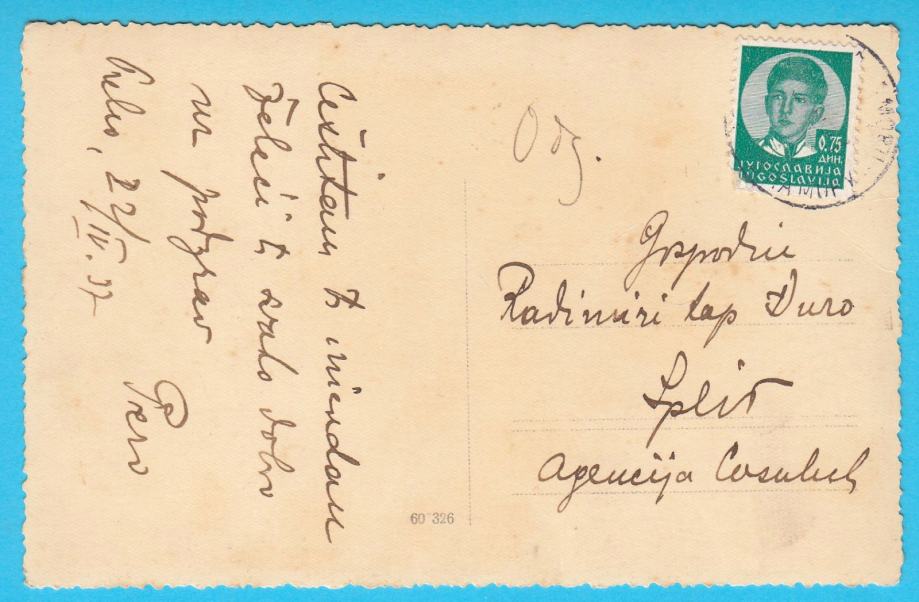 Čestitam ti imendan
Želeći ti svako dobro
uz pozdrav
Pero
22/IV. 37
Odg.
0,75
ДИН.
ЈУГОСЛАВИЈА
JUGOSLAVIJA
Gospodin
Radimiri kap Đuro
Split
Agencija Cosulich
60 326